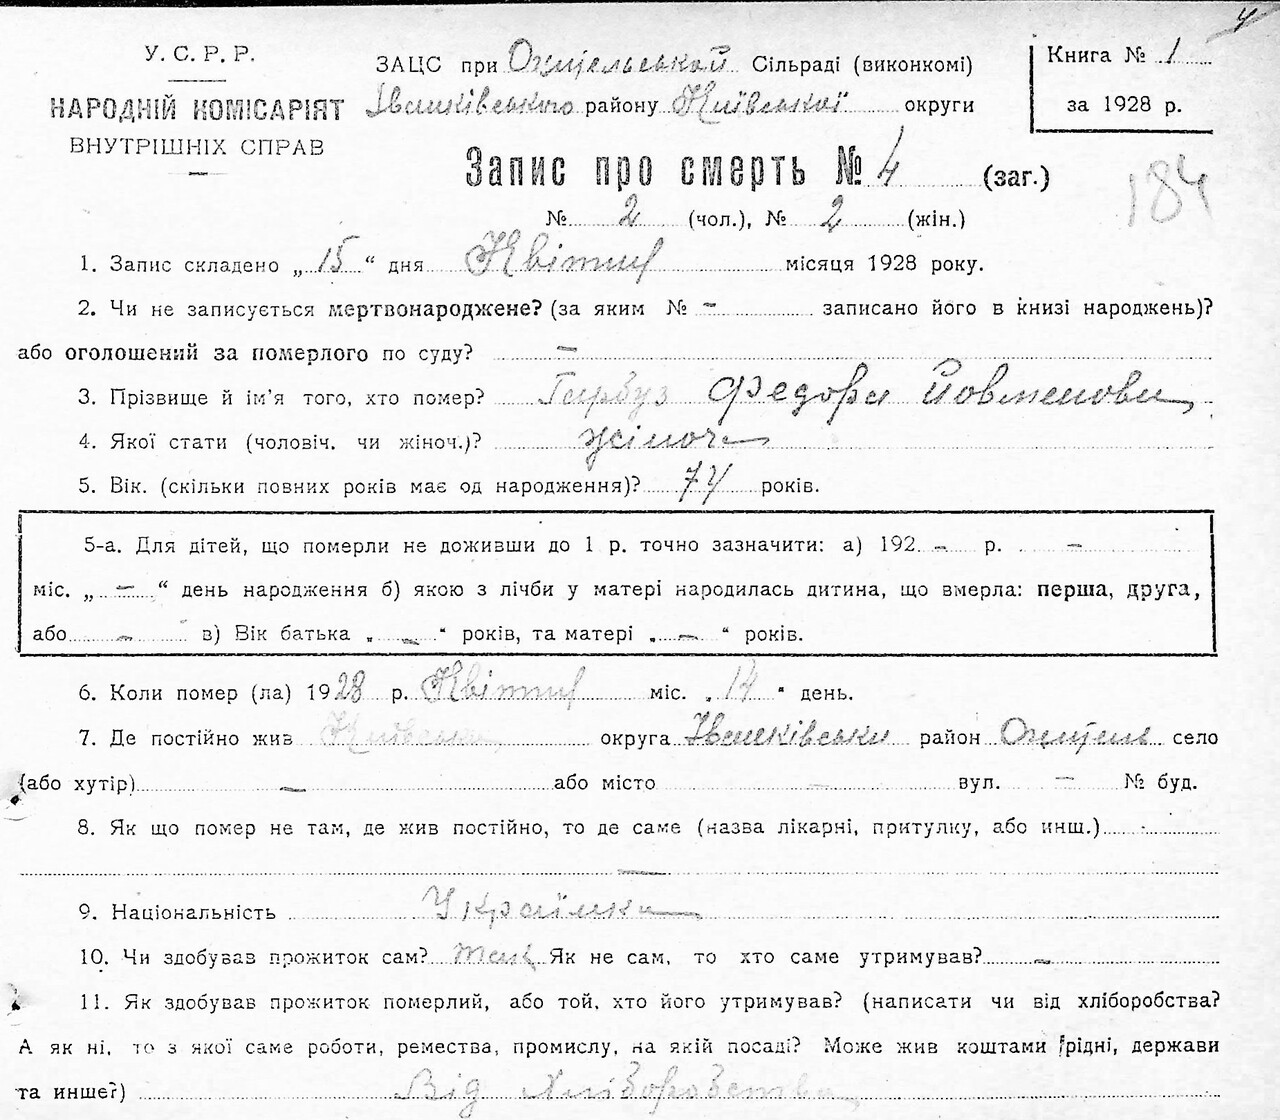 У. С. Р. Р.
НАРОДНІЙ КОМІСАРІЯТ
ВНУТРІШНІХ СПРАВ
ЗАЦС при Сільраді (виконкомі)
Іванківського району Київської округи
Книга № 1
за 1928 р.
Запис про смерть № 4 (заг.)
184
№ 2 (чол.), № 2 (жін.)
1. Запис складено „ 15 “ дня Квітня місяця 1928 року.
2. Чи не записується мертвонароджене? (за яким № – записано його в книзі народжень)?
або оголошений за померлого по суду? –
3. Прізвище й ім'я того, хто помер? Гарбуз Федора
4. Якої стати (чоловіч. чи жіноч.)? жіноча
5. Вік. (скільки повних років має од народження)? 74 років.
5-а. Для дітей, що померли не доживши до 1 р. точно зазначити: а) 192 – р. –
міс. „ – “ день народження б) якою з лічби у матері народилась дитина, що вмерла: перша, друга,
або – в) Вік батька „ – “ років, та матері „ – “ років.
6. Коли помер (ла) 1928 р. Квітня міс. „ 14 “ день.
7. Де постійно жив Київська округа Іванківський район село
(або хутір) – або місто – вул. – № буд.
8. Як що помер не там, де жив постійно, то де саме (назва лікарні, притулку, або инш.) –
–
9. Національність Українка
10. Чи здобував прожиток сам? так Як не сам, то хто саме утримував? –
11. Як здобував прожиток померлий, або той, хто його утримував? (написати чи від хліборобства?
А як ні, то з якої саме роботи, ремества, промислу, на якій посаді? Може жив коштами рідні, держави
та инше?) Від Хліборобства